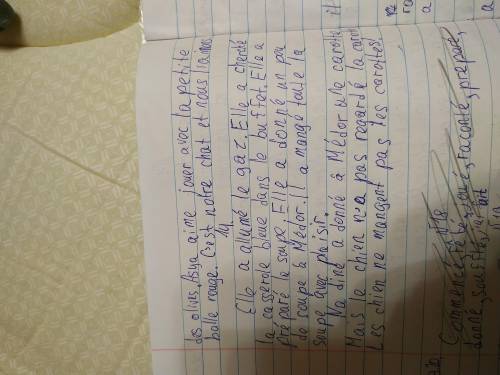 des olins, Asya aime jouer avec la petite
balle rouge. C'est notre chat et nous
14
Elle a allumé le gaz. Elle a cherché
la casserole bleue dans le buffet. Elle a
préparé le soupe, Elle a donné un peu
de soupe à Médor. Il a mangé toute la
soupe avec plaisir.
Nadine a donné à Médor une carotte
Mais le chien n'a pas regardé la
Les chien ne mangent pas les carottes!
Commencé, été, joué, raconté, préparé,
donné, souffler,